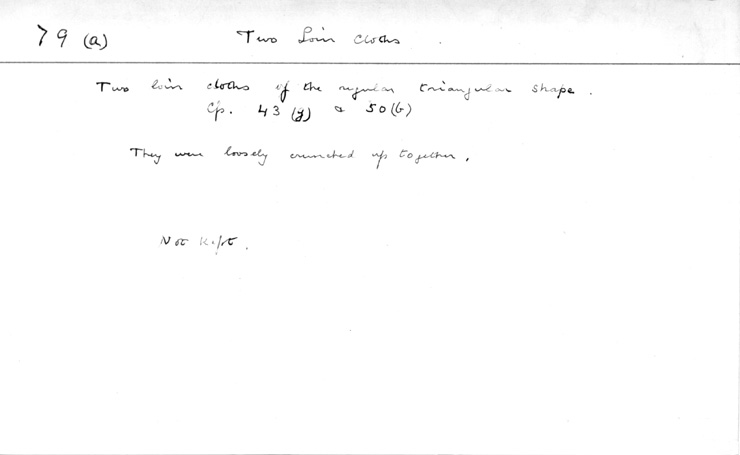 79 (a) Two Loin cloths .
Two loin cloths of the regular triangular shape .
Cp. 43 (g) & 50 (b)
They were loosely crunched up together .
Not Kept .